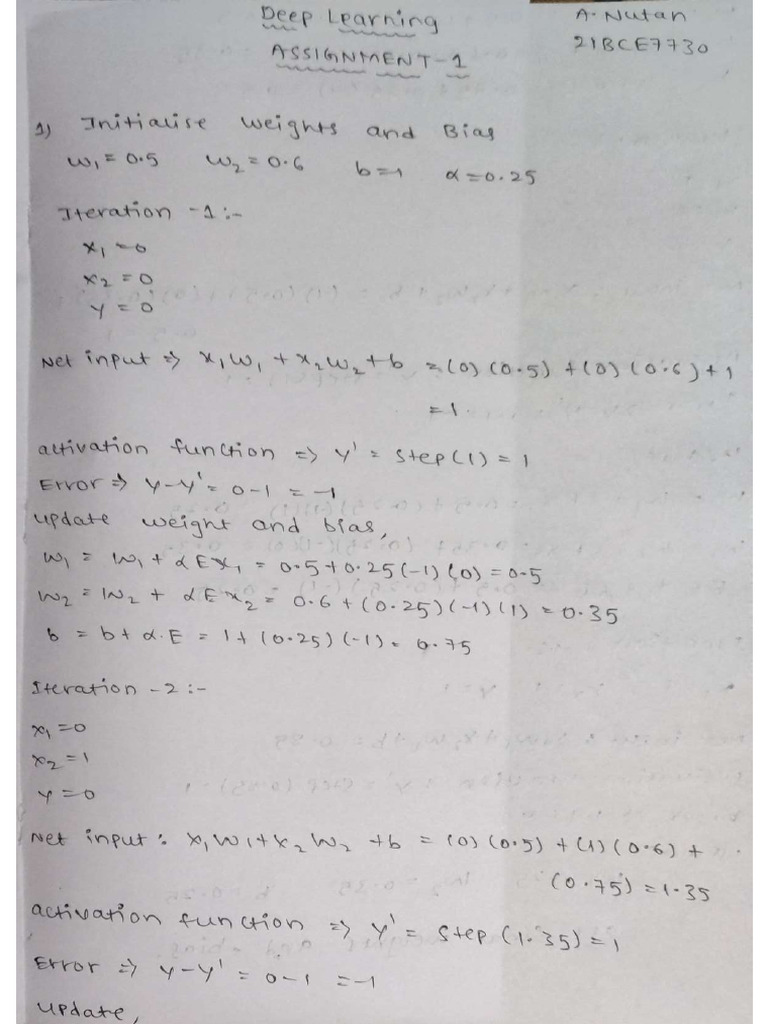 Deep Learning
A. Nutan
ASSIGNMENT-1
21BCE7730
1) Initialise weights and Bias
w₁ = 0.5 w₂ = 0.6 b=1 α=0.25
Iteration -1 :-
x₁ = 0
x₂ = 0
y = 0
Net input ⇒ x₁w₁ + x₂w₂ + b = (0) (0.5) + (0) (0.6) + 1
= 1
activation function ⇒ y' = step(1) = 1
Error ⇒ y-y' = 0-1 = -1
update weight and bias,
w₁ = w₁ + αEx₁ = 0.5+0.25(-1)(0) = 0.5
w₂ = w₂ + αEx₂ = 0.6+(0.25)(-1)(1) = 0.35
b = b+α.E = 1+(0.25)(-1) = 0.75
Iteration -2 :-
x₁ = 0
x₂ = 1
y = 0
Net input : x₁w₁+x₂w₂ +b = (0) (0.5) + (1) (0.6) +
(0.75) = 1.35
activation function ⇒ y' = step (1.35) = 1
Error ⇒ y-y' = 0-1 = -1
update,